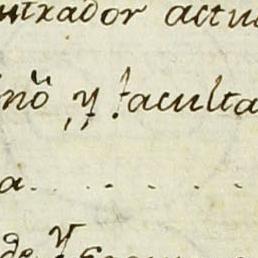 ntrador actu
ino y faculta
a. . . . . .
de